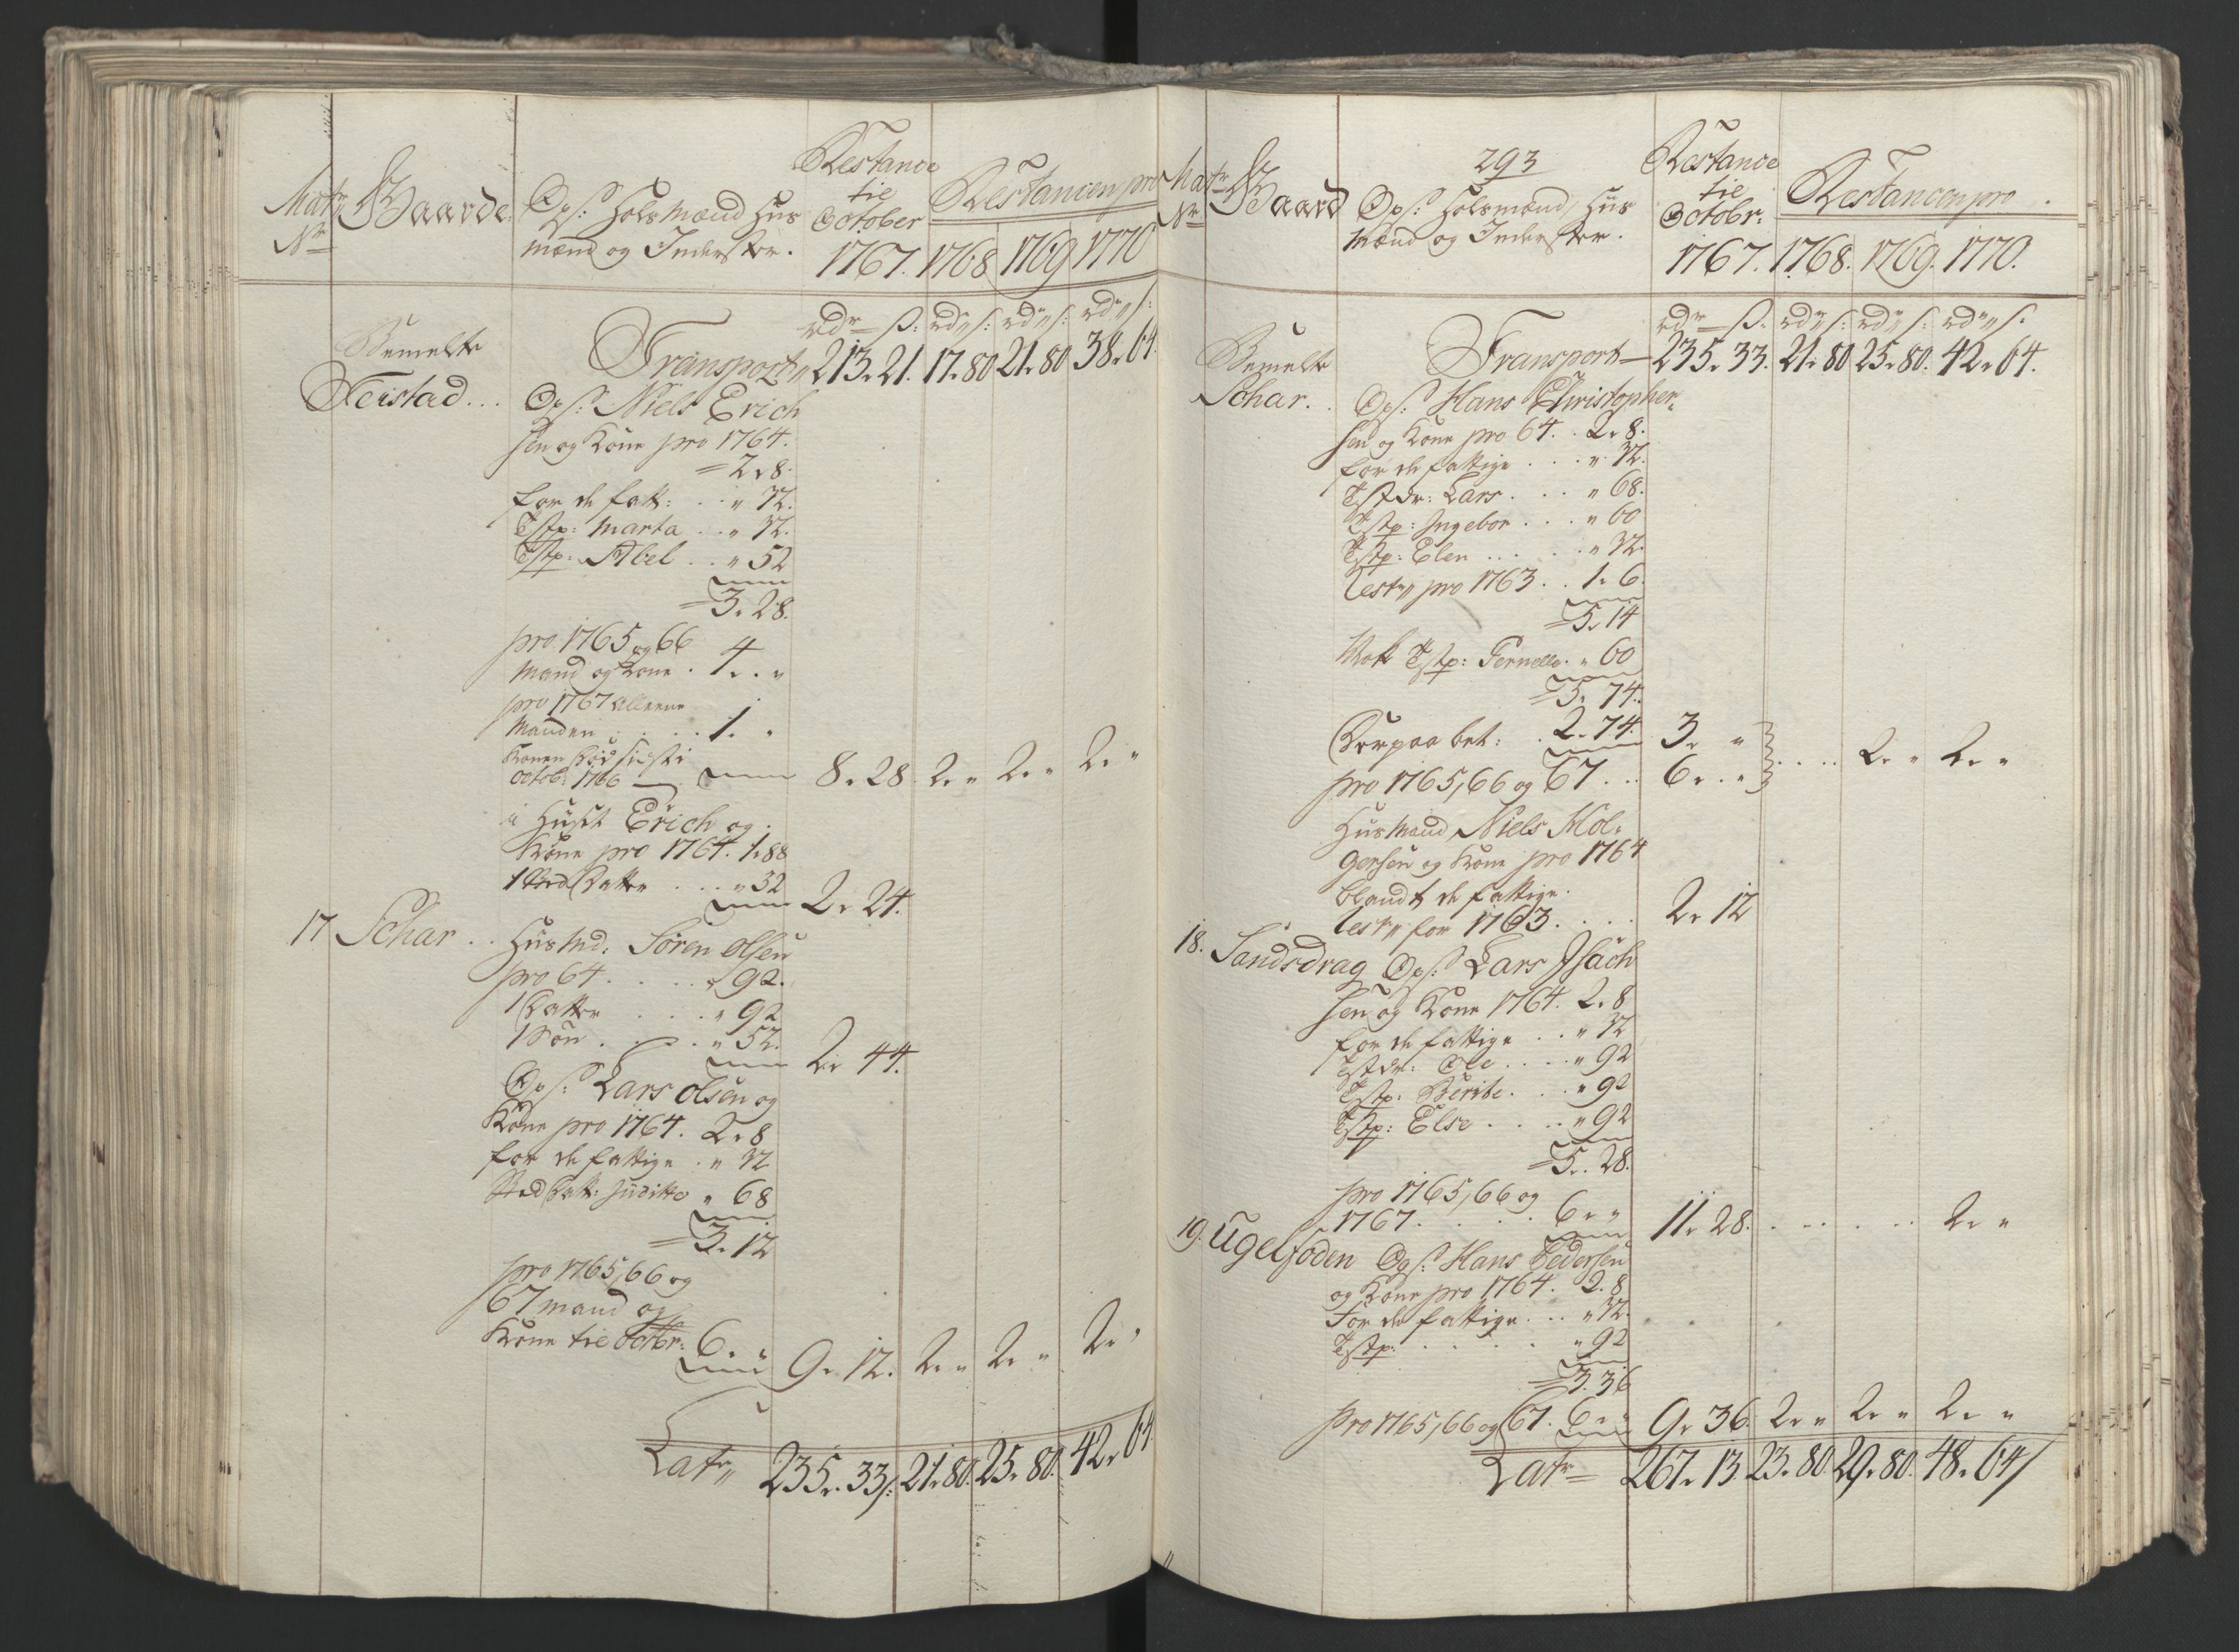 Matr: Nr
Gaarde:
Ops: Holsmænd Hus
mænd og Inderster.
Restance
til
October
1767.
Restancen pro
1768 1769 1770
rdr ß: rd s: rd s: rd s:
Bemelte
Feistad...
Transport 213. 21. 17. 80 21. 80 38. 64
Ops: Niels Erich
sen og Kone pro 1764.
2. 8.
for de fatt: .. " 32.
Tstp: Marta .. " 32.
Tstp: Abel .. " 52
3. 28.
pro 1765 og 66
Mand og Kone . 4. "
pro 1767 alleene
Manden . . . . 1. "
Konen død sidst i
Octob: 1766 8. 28 2. " 2. " 2. "
i Huset Erich og
Kone pro 1764. 1. 88
1 Datter . . . " 32 2. 24.
17 Schar .. Husmd: Søren Olsen
pro 64 . . . . " 92.
1 Datter . . . " 92
1 Søn . . . . " 52. 2. 44.
Ops: Lars Olsen og
Kone pro 1764. 2. 8
for de fattige . " 32
Sted Datt: Juditte " 68
3. 12
pro 1765, 66 og
67 mand og
Kone til Octbr: 6. " 9. 12. 2. " 2. " 2. "
Latr 235. 33 21. 80. 25. 80. 42. 64
Matr Nr
Gaard
293
Ops: Holsmænd, Hus
Mænd og Inderster.
Restance
til
Octobr:
1767.
Restancen pro
1768. 1769. 1770.
rdr ß. rd s: rd s: rd s.
Bemelte
Schar. .
Transport 235. 33. 21. 80 25. 80. 42. 64.
Ops: Hans Christopher
sen og Kone pro 64. . 2. 8.
for de fattige . . . " 32.
Tstdr: Lars . . . " 68.
Tstp: Ingebor . . . " 60
Tstp: Elen . . . . " 32
rest pro 1763 . . 1. 6.
5. 14
Nok Tstp: Pernelle. " 60
5. 74.
Derpaa bet: . 2. 74. 3. "
pro 1765, 66 og 67 . . 6. " . . . . 2. " 2. "
Husmand Niels Hol-
gersen og Kone pro 1764
blandt de fattige.
rest for 1763. . . . 2. 12
18. Sandsdrag Ops: Lars Isach
sen og Kone 1764. 2. 8
for de fattige . . " 32
Tstdr: Ole . . . . " 92
Tstp: Berite . . . " 92
Tstp: Else . . . . " 92
5. 28.
pro 1765, 66 og
1767. . . . . 6. " 11. 28. . . . . . 2. "
19. Ugelfoden Ops: Hans Pedersen
og Kone pro 1764. 2. 8
For de fattige. . . " 32.
Tstp: . . . . . " 92
3. 36
pro 1765, 66 og 67. 6. " 9. 36 2. " 2. " 2. "
Latr 267. 13. 23. 80 29. 80. 48. 64